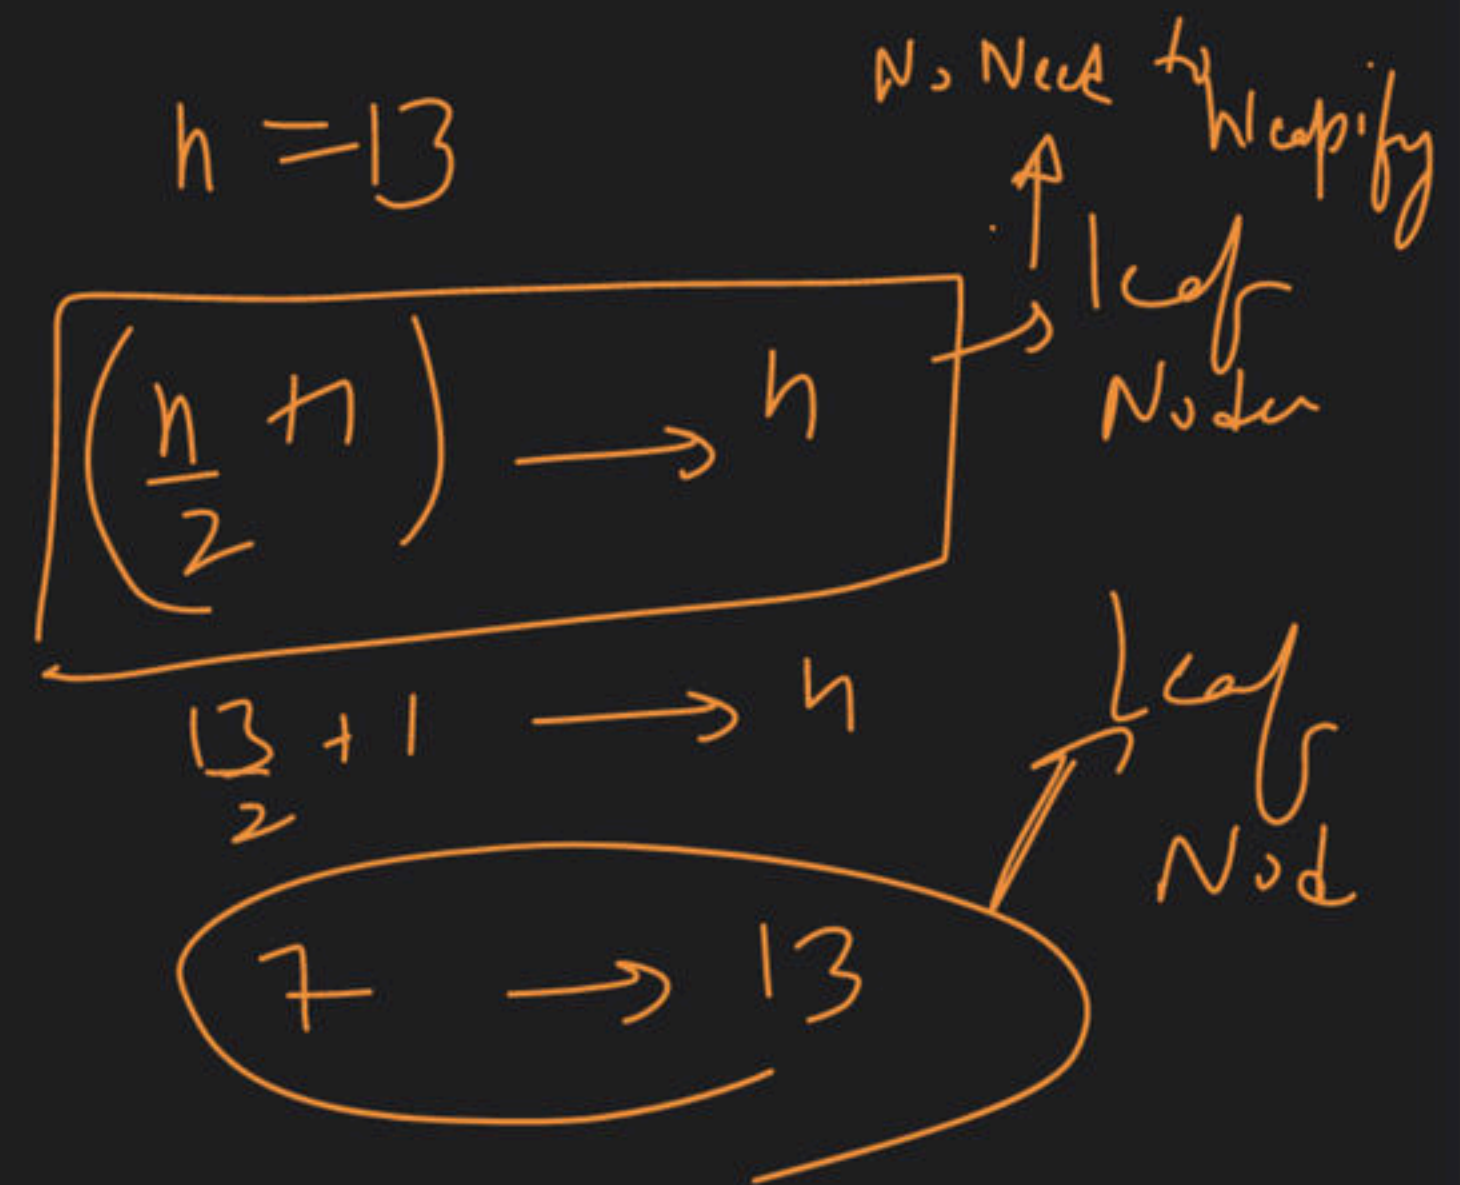 n = 13
No Need to Heapify
(n/2 + 1) → n
leaf
Nodes
13/2 + 1 → n
Leaf
Nod
7 → 13